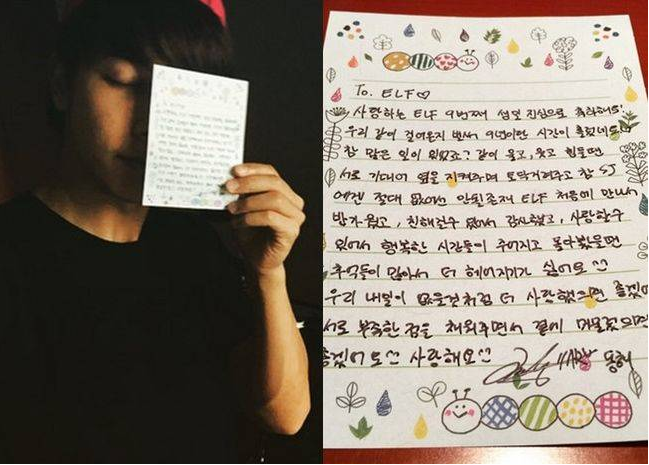 To. ELF♡
사랑하는 ELF 9번째 생일 진심으로 축하해요!
우리 같이 걸어온지 벌써 9년이란 시간이 흘렀네요
참 많은 일이 있었죠? 같이 울고, 웃고 힘들면
서로 기대어 옆을 지켜주며 토닥거려주고 참 SJ
에겐 절대 없어선 안될존재 ELF 처음에 만나서
반가웠고, 친해질수 있어서 감사했고, 사랑할수
있어서 행복한 시간들이 주어지고 돌아봤을땐
추억들이 많아서 더 헤어지기가 싫어요^^
우리 내일이 없을것처럼 더 사랑했으면 좋겠어
서로 부족한 점을 채워주면서 곁에 머물렀으면
좋겠어요^^ 사랑해요^^
동해